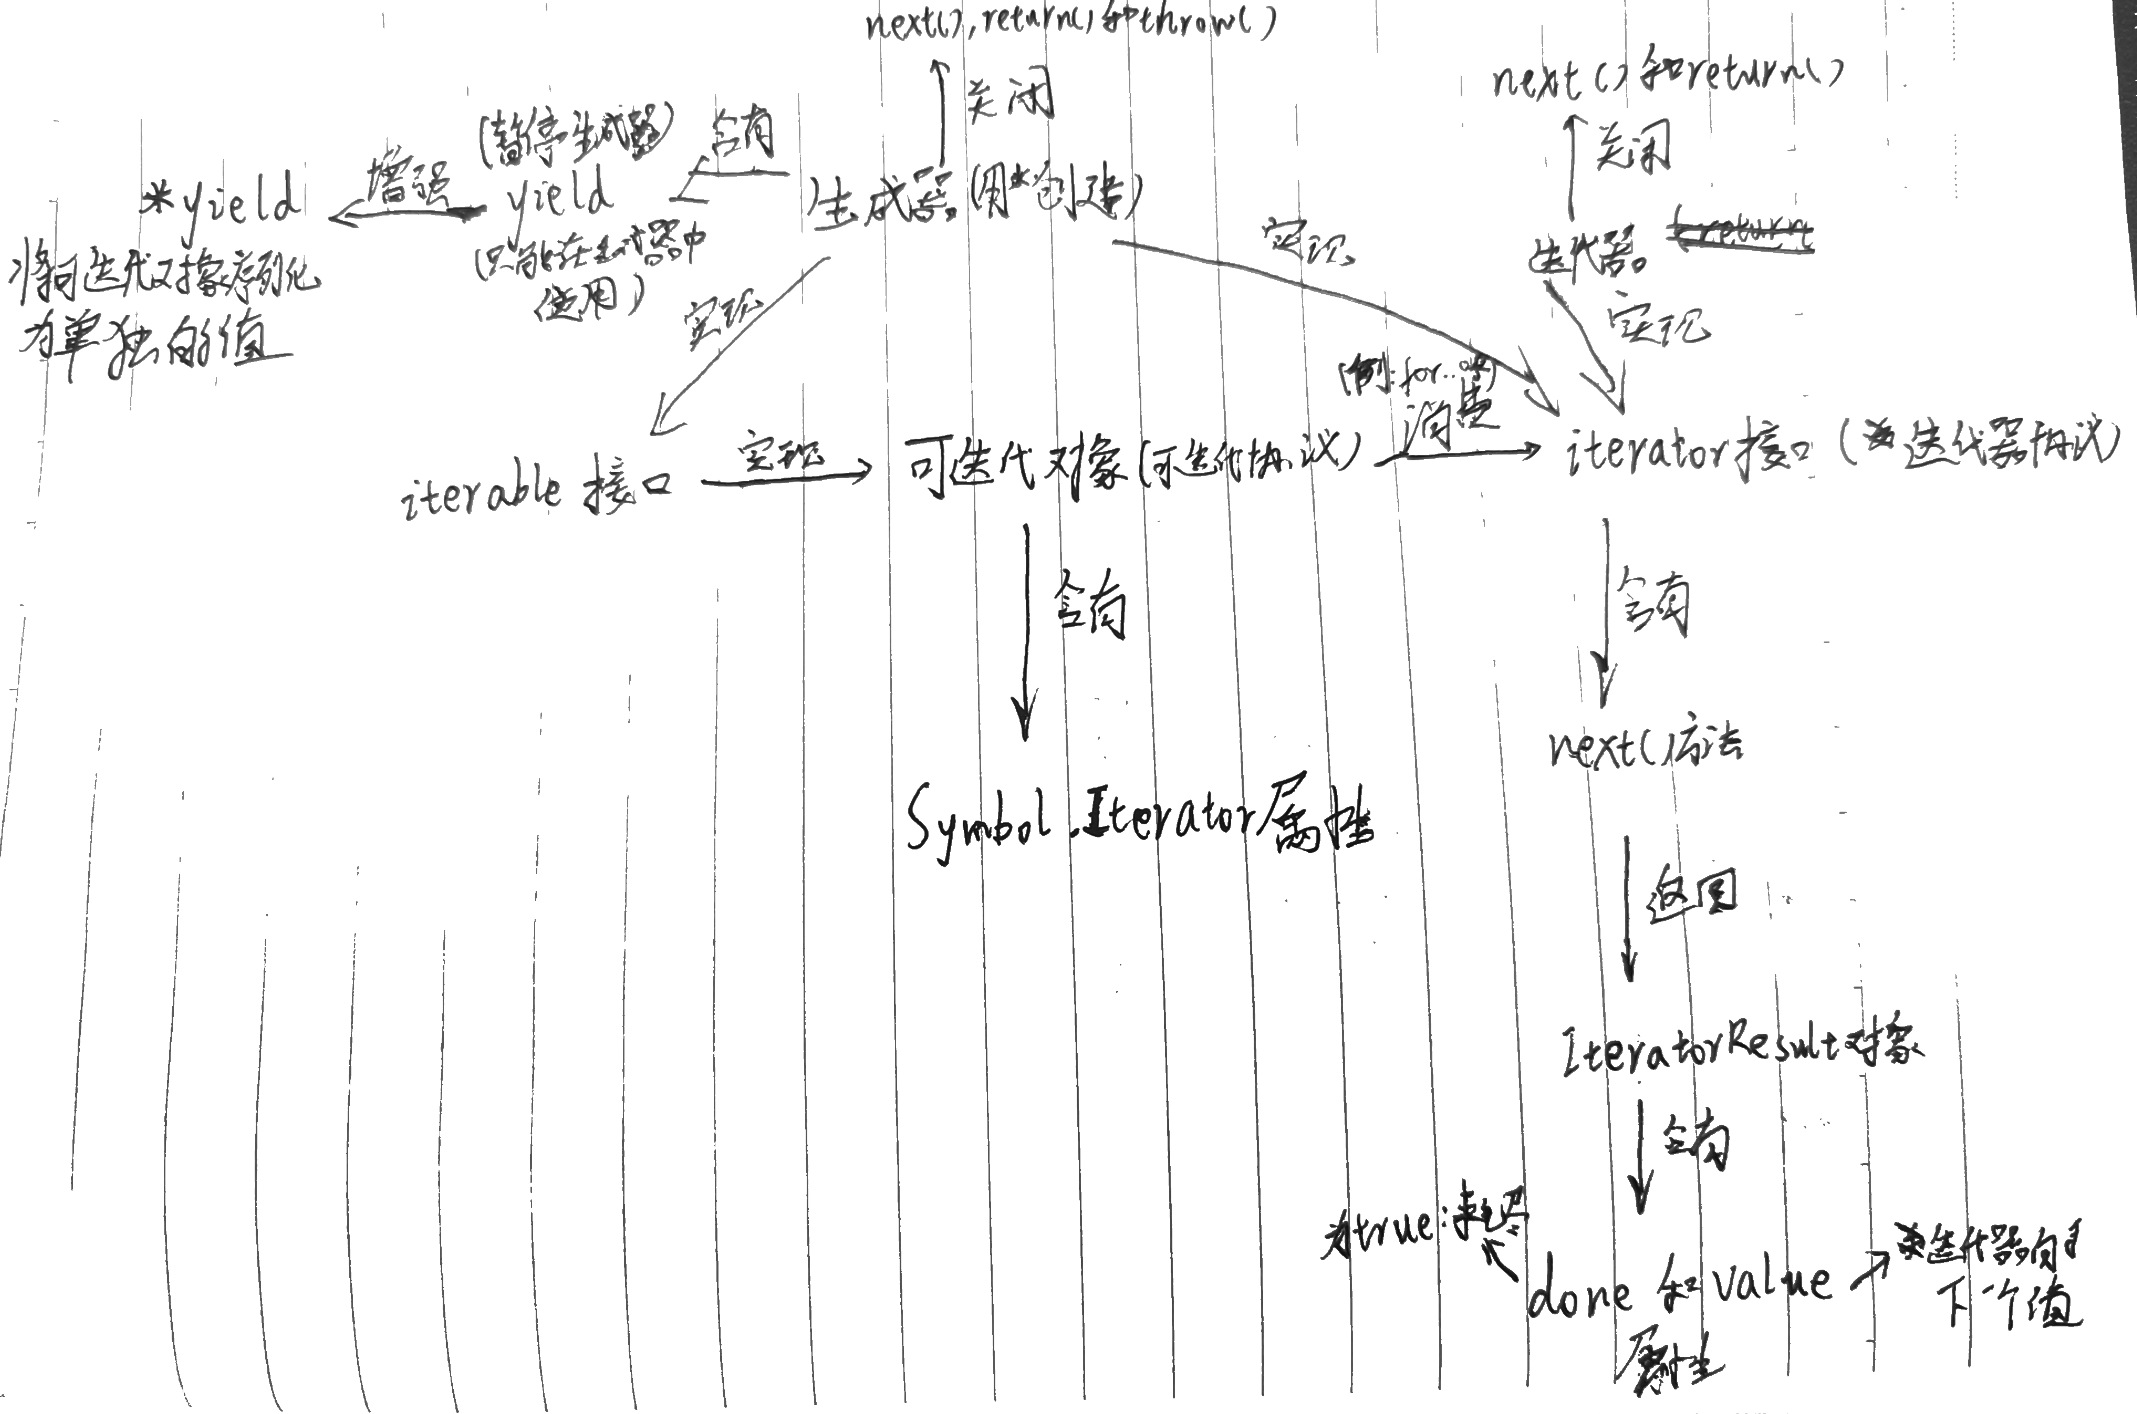 next(),return()和throw()
关闭
next()和return()
关闭
(暂停生成器)
含有
增强
*yield
yield
生成器(用*创建)
将可迭代对象序列化
为单独的值
(只能在生成器中
使用)
实现
实现
迭代器
实现
(例:for...of)
消费
iterable接口
实现
可迭代对象(可迭代协议)
iterator接口(迭代器协议)
含有
含有
Symbol.Iterator属性
next()方法
返回
IteratorResult对象
含有
为true:耗尽
done和value
属性
迭代器的
下一个值